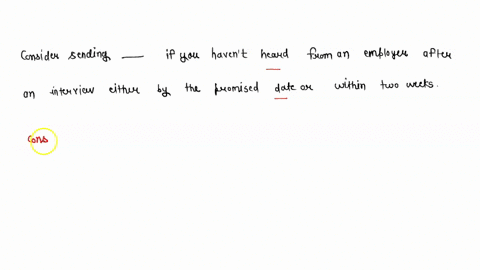 Consider sending ___ if you haven't heard from an employer after
an interview either by the promised date or within two weeks.
Cons